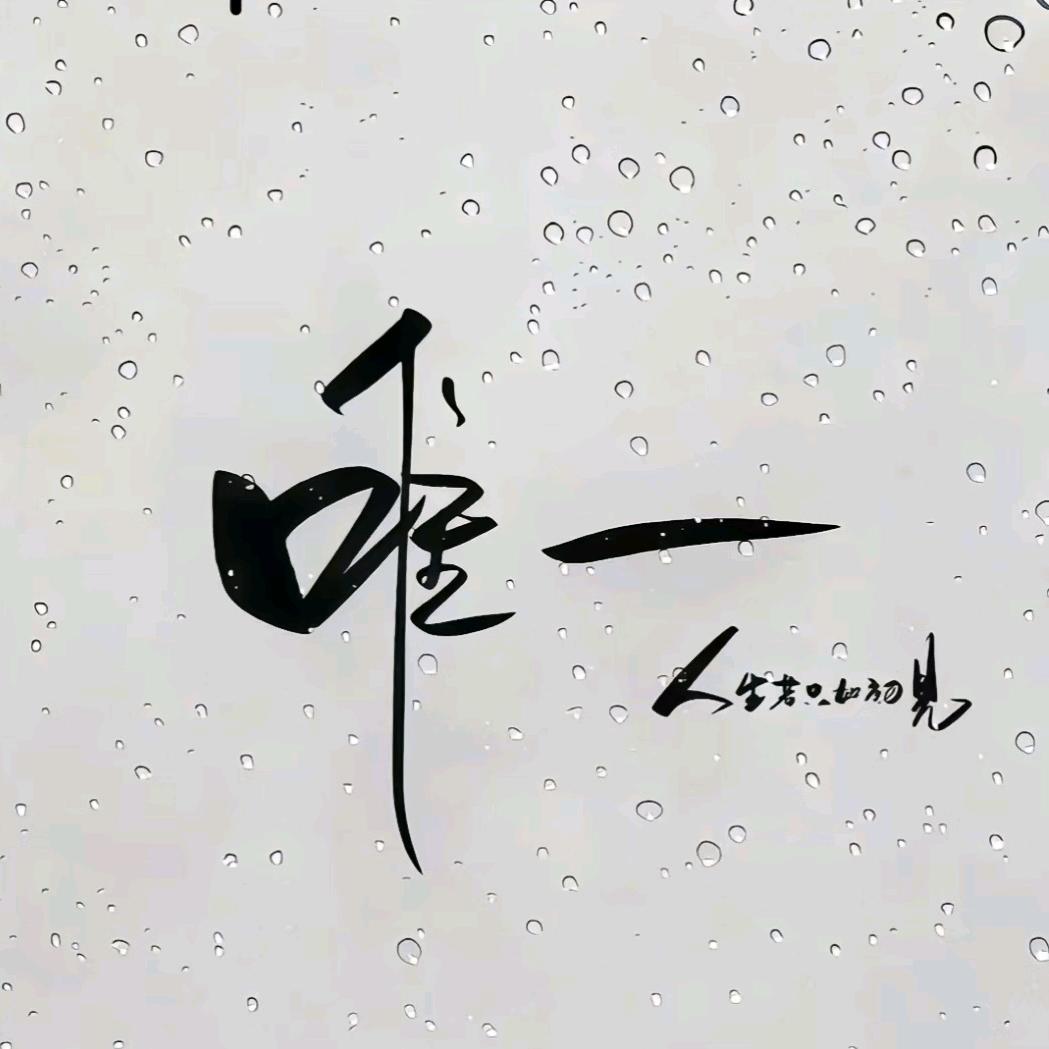 唯一
人生若只如初见